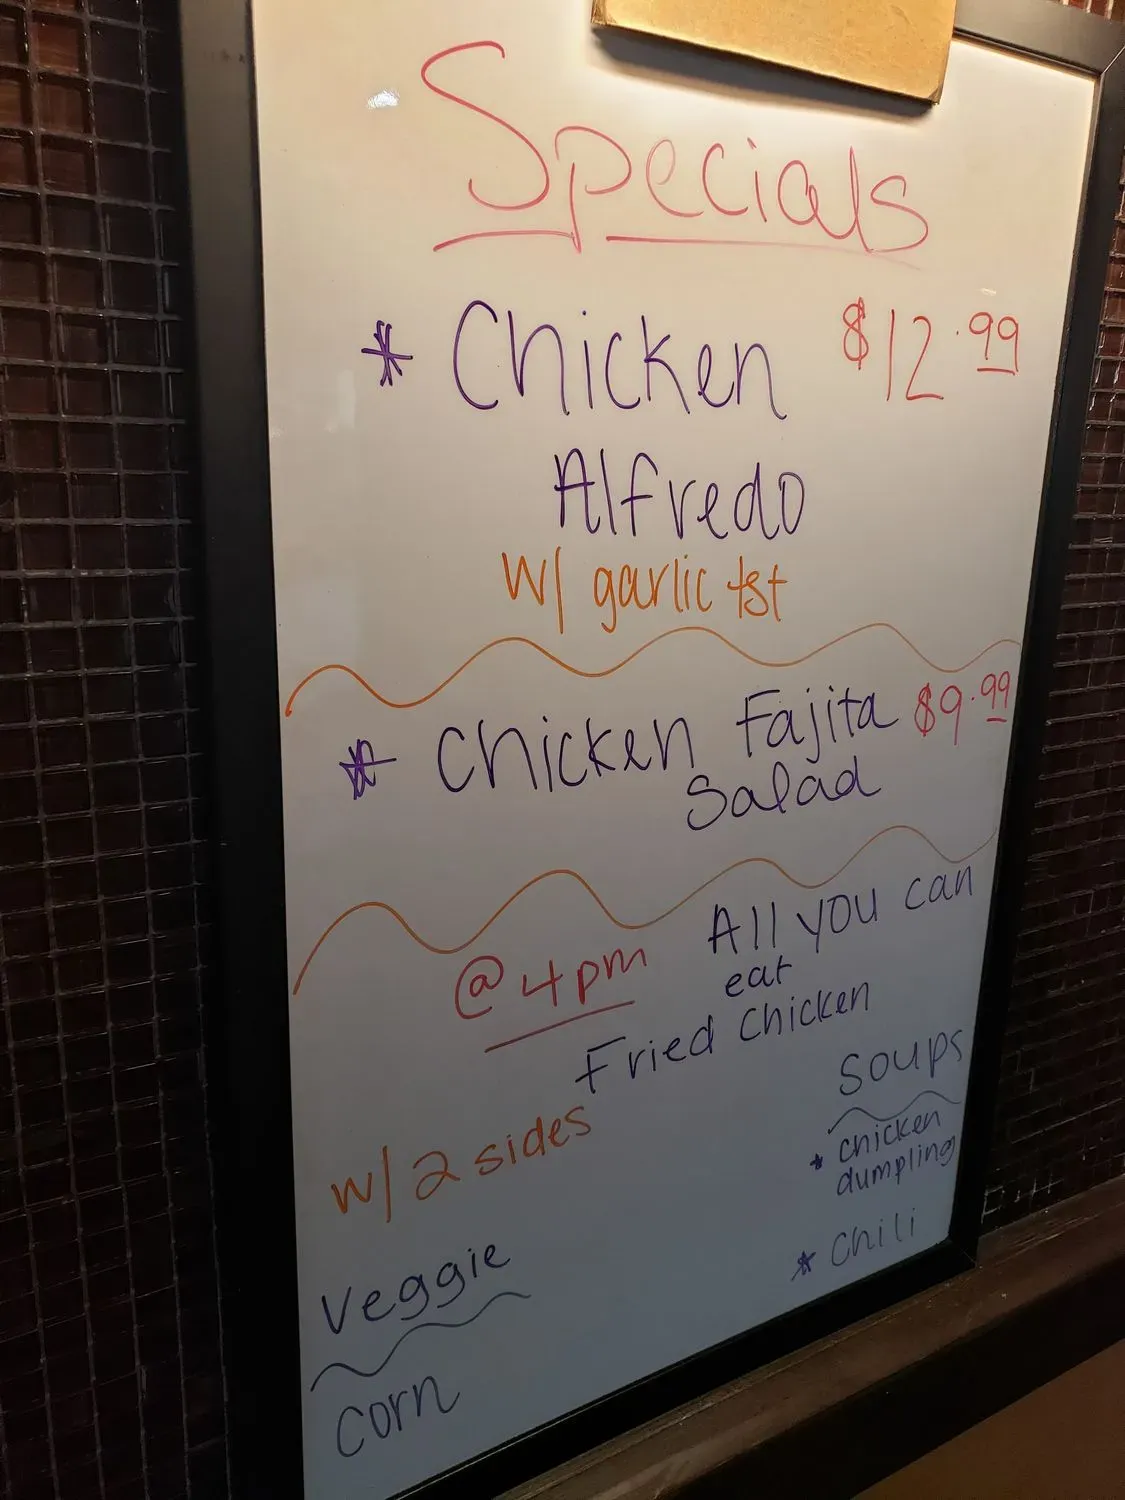 Specials
* Chicken $12.99
Alfredo
w/ garlic tst
* Chicken Fajita $9.99
Salad
@ 4pm All you can
eat
Fried Chicken
w/ 2 sides
Soups
* chicken
dumpling
* Chili
Veggie
Corn